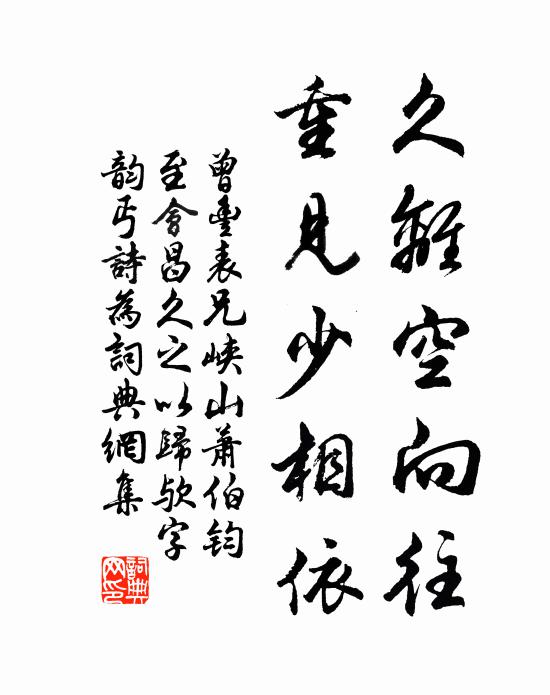 久離空向往
重見少相依
曾豐表兄峽山蕭伯鈞
至會昌久之以歸欤字
韵丐詩為詞典網集
詞典网印